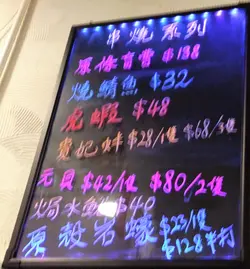 串燒系列
原條青鱔 $138
燒鯖魚 $32
虎蝦 $48
貴妃蚌 $28/1隻 $68/3隻
元貝 $42/1隻 $80/2隻
焗水魷 $40
原殼岩蠔 $23/1隻
$128半打